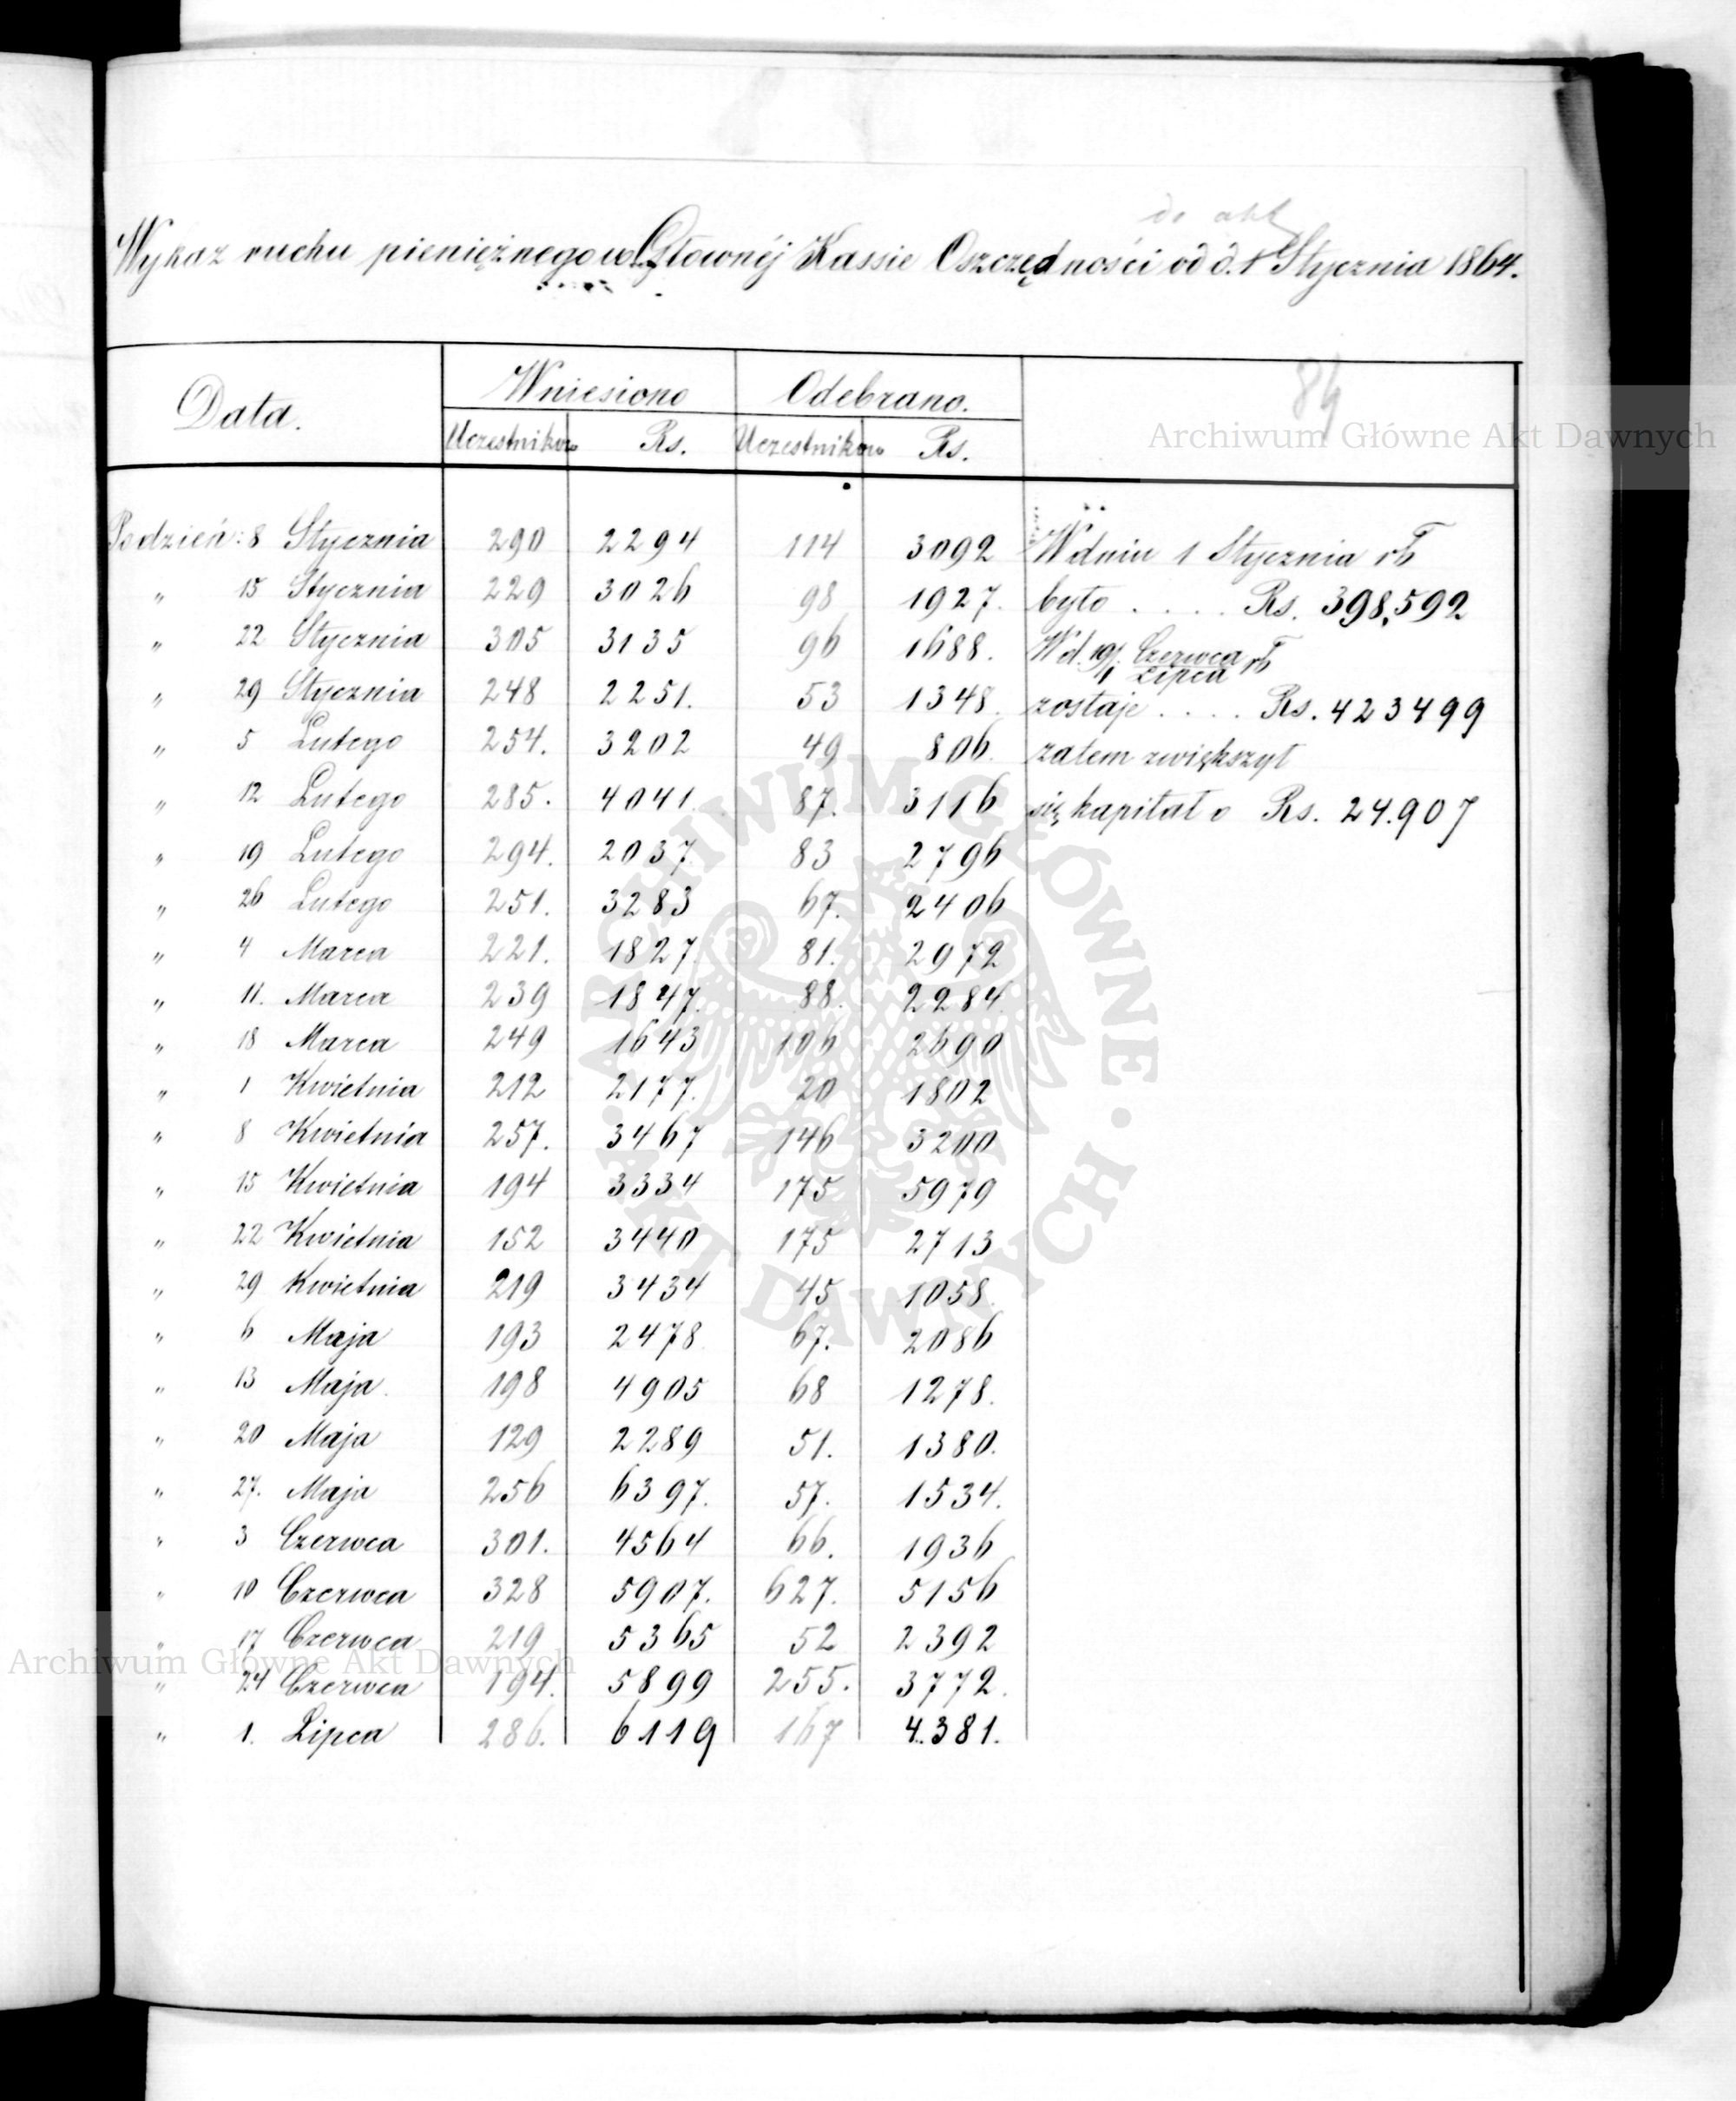 do akt
Wykaz ruchu pieniężnego w Głównéj Kassie Oszczędności od d. 1 Stycznia 1864.
84
Data. Wniesiono Odebrano.
Uczestników Rs. Uczestników Rs.
Archiwum Główne Akt Dawnych
Podzień: 8 Stycznia 290 2294 114 3092 W dniu 1 Stycznia rb
" 15 Stycznia 229 3026 98 1927. było . . . . Rs. 398,592
" 22 Stycznia 305 3135 96 1688. W d. 19/1 Czerwca/Lipca rb
" 29 Stycznia 248 2251. 53 1348. zostaje . . . . Rs. 423499
" 5 Lutego 254. 3202 49 806. zatem zwiększył
" 12 Lutego 285. 4041. 87. 3116 się kapitał o Rs. 24.907
" 19 Lutego 294. 2037. 83 2796
" 26 Lutego 251. 3283 67. 2406
" 4 Marca 221. 1827. 81. 2972
" 11. Marca 239 1847. 88. 2284.
" 18 Marca 249 1643 106 2690
" 1 Kwietnia 212 2177. 20 1802
" 8 Kwietnia 257. 3467 146 3200
" 15 Kwietnia 194 3334 175 5979
" 22 Kwietnia 152 3440 175 2713
" 29 Kwietnia 219 3434 45 1058.
" 6 Maja 193 2478. 67. 2086
" 13 Maja. 198 4905 68 1278.
" 20 Maja 129 2289 51. 1380.
" 27. Maja 256 6397. 57. 1534.
" 3 Czerwca 301. 4564 66. 1936
" 10 Czerwca 328 5907. 627. 5156
" 17 Czerwca 219 5365 52 2392
" 24 Czerwca 194. 5899 255. 3772.
" 1. Lipca 286. 6119 167 4.381.
ARCHIWUM GŁÓWNE AKT DAWNYCH
Archiwum Główne Akt Dawnych